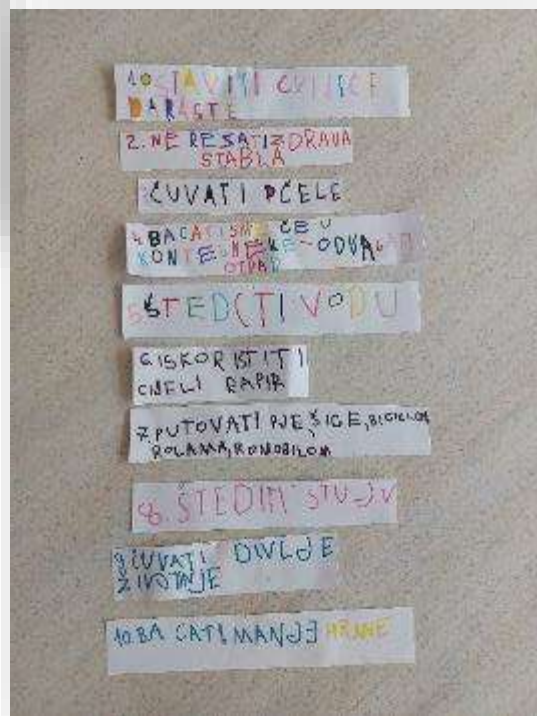 1. OSTAVITI CVIJEĆE
DA RASTE
2. NE REZATI ZDRAVA
STABLA
ČUVATI PČELE
4. BACATI SMEĆE U
KONTEJNERE - ODVAJATI
OTPAD
5. ŠTEDITI VODU
6. ISKORISTITI
CIJELI PAPIR
7. PUTOVATI PJEŠICE, BICIKLOM
ROLAMA, ROMOBILOM
8. ŠTEDIM STUJU
9. ČUVATI DIVLJE
ŽIVOTNJE
10. BACATI MANJE HRANE